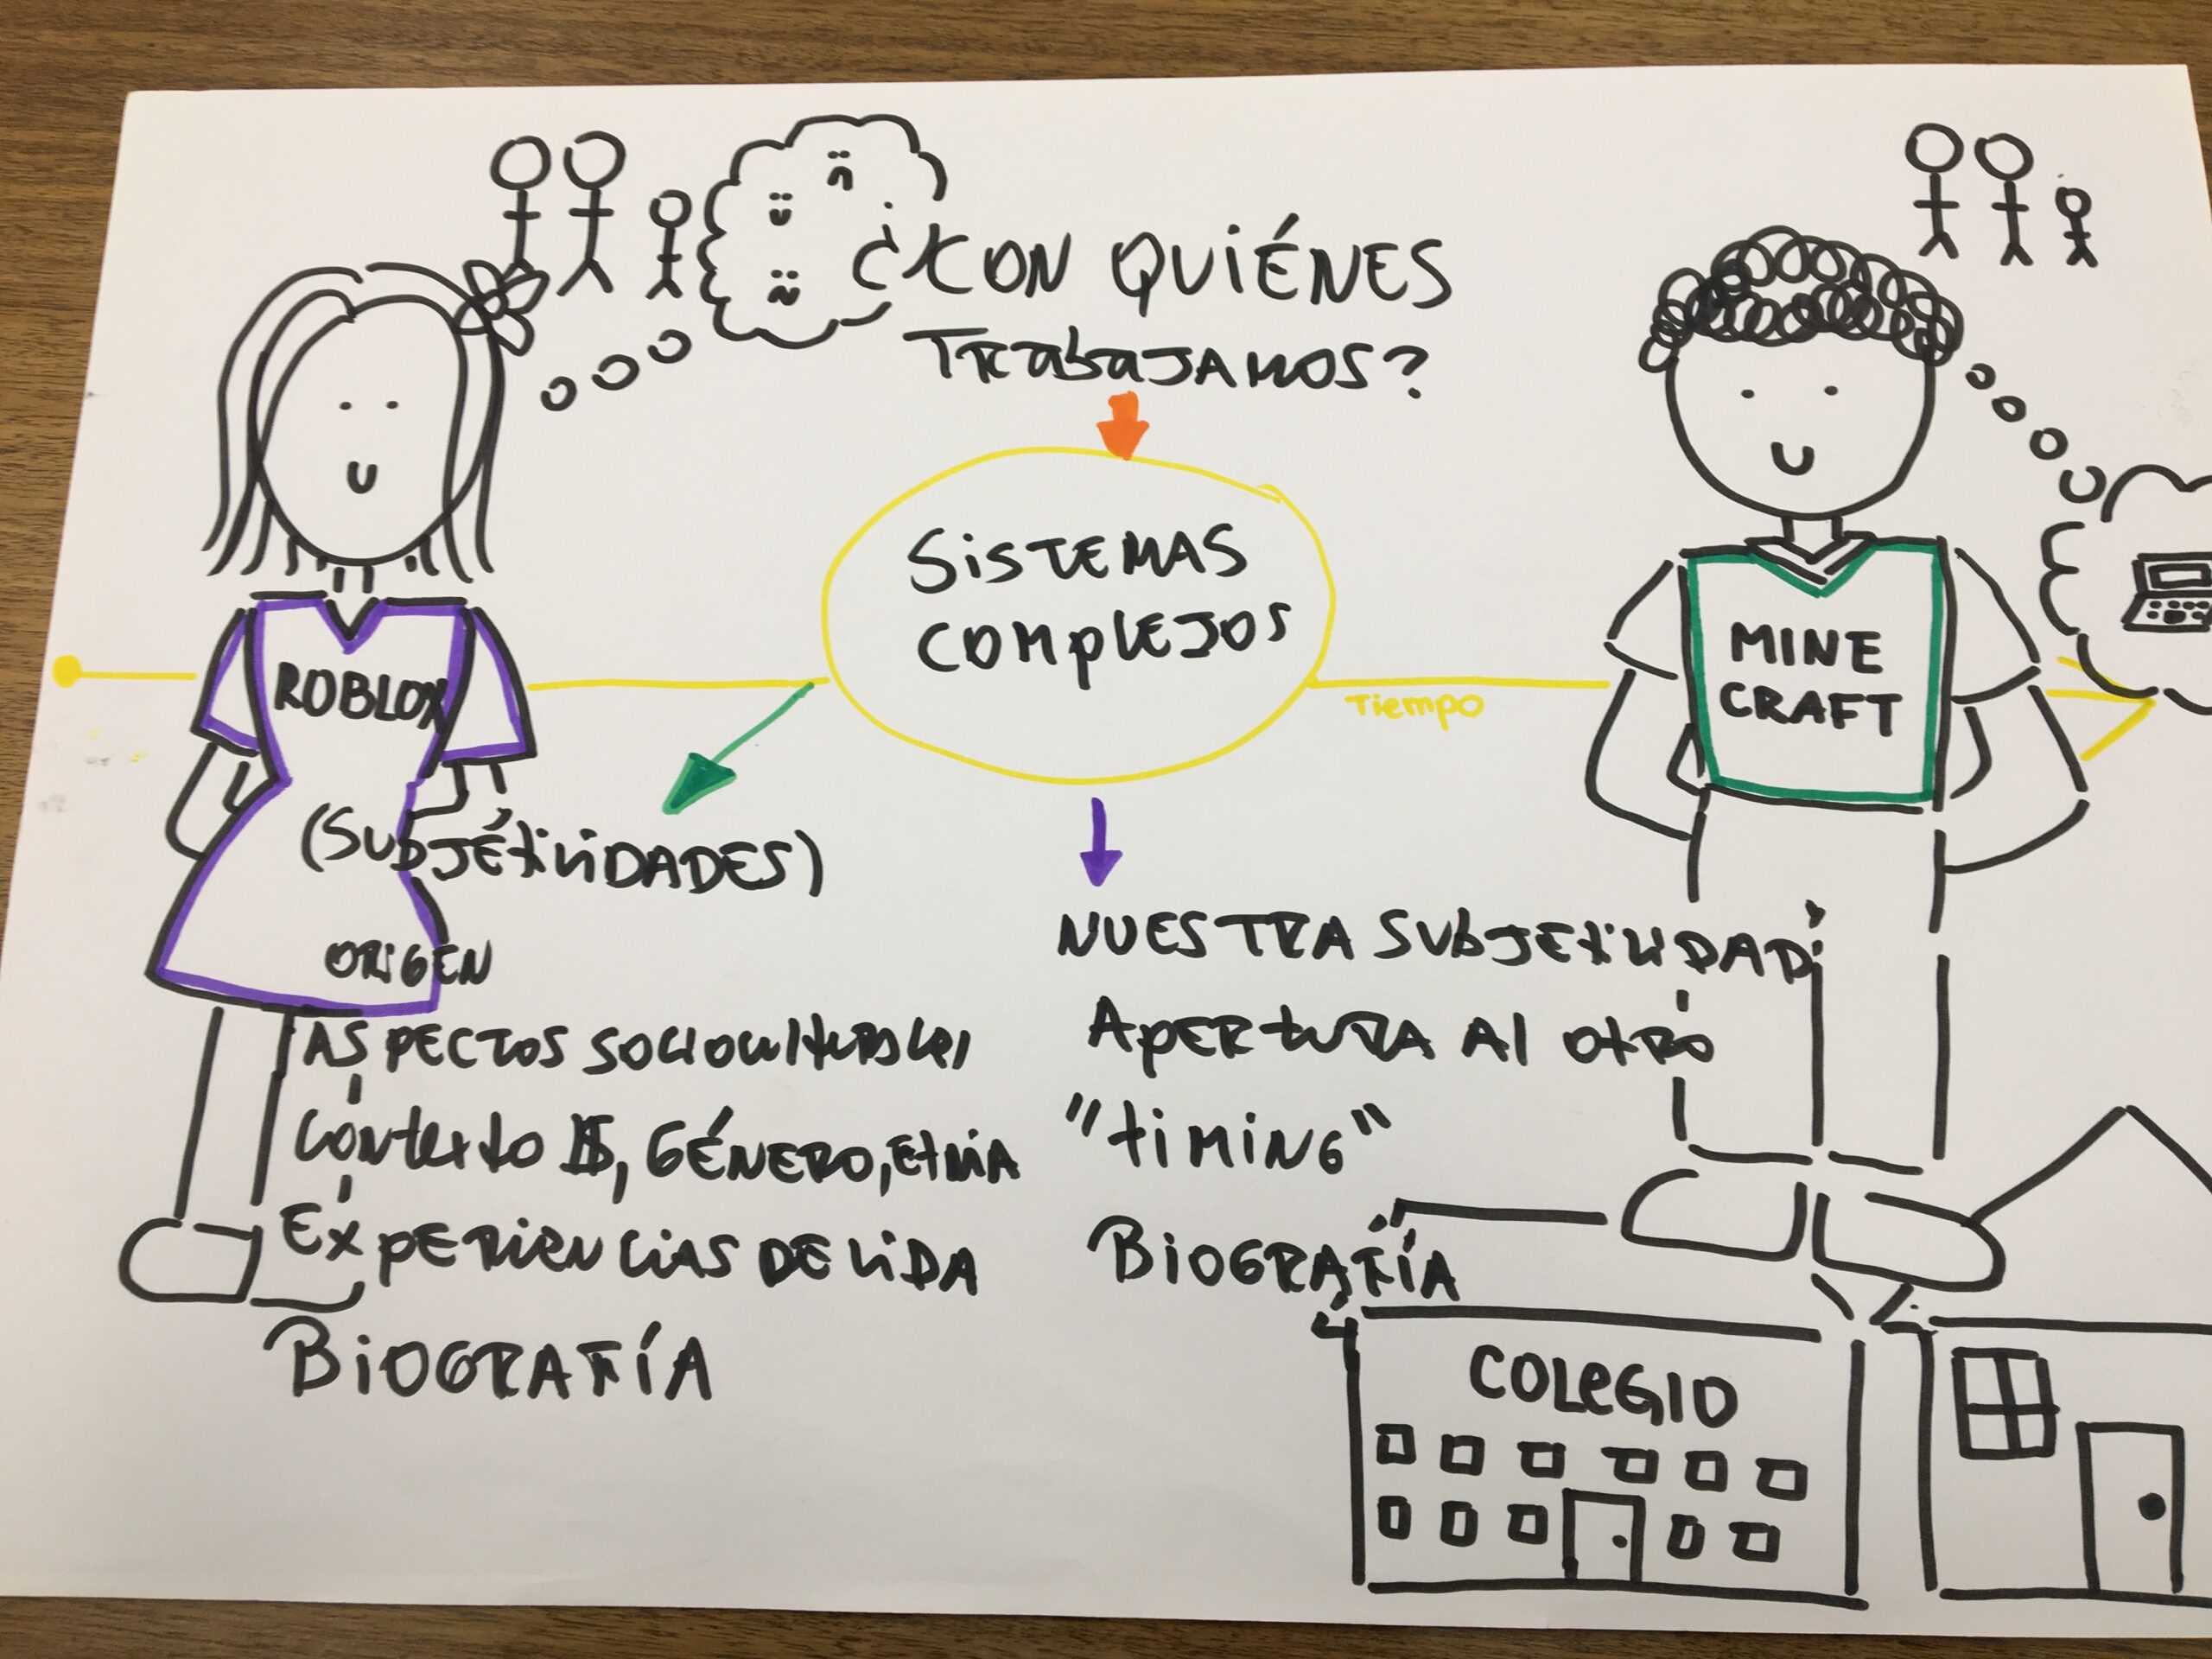 ¿CON QUIÉNES
TRabaJAMOS?
SiSTEMAS
COMPLEJOS
Tiempo
ROBLOX
MINE
CRAFT
(SUBJETIVIDADES)
ORIGEN
ASPECTOS SOCIOCULTURALES
Contexto $, GÉNERO, Etnia
EXPERIENCIAS DE VIDA
BiOGRAFÍA
NUESTRA SUBJETIVIDAD
APERTURA Al OTRO
"tiMiNG"
BiOGRAFÍA
COLeGIO